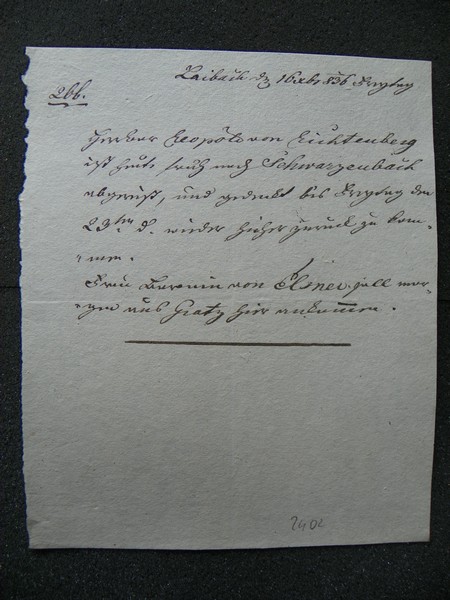 Laibach d 16 xbr 836 Freytag
266.
Herr Leopold von Lichtenberg
ist heute früh nach Schwarzenbach
abgereist, und gedenkt bis Freytag den
23ten d. wieder hieher zurück zu kom-
men.
Frau Baronin von Elsner soll mor-
gen aus Gratz hier ankommen.
2402